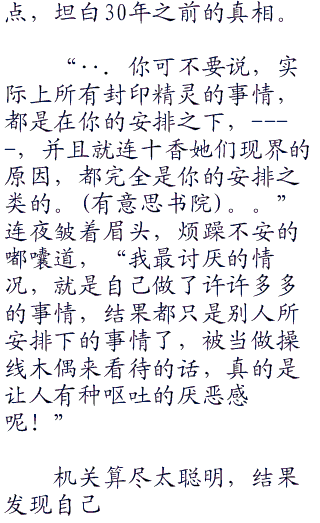 点，坦白30年之前的真相。
“··．你可不要说，实
际上所有封印精灵的事情，
都是在你的安排之下，---
-，并且就连十香她们现界的
原因，都完全是你的安排之
类的。(有意思书院)。。”
连夜皱着眉头，烦躁不安的
嘟囔道，“我最讨厌的情
况，就是自己做了许许多多
的事情，结果都只是别人所
安排下的事情了，被当做操
线木偶来看待的话，真的是
让人有种呕吐的厌恶感
呢！”
机关算尽太聪明，结果
发现自己